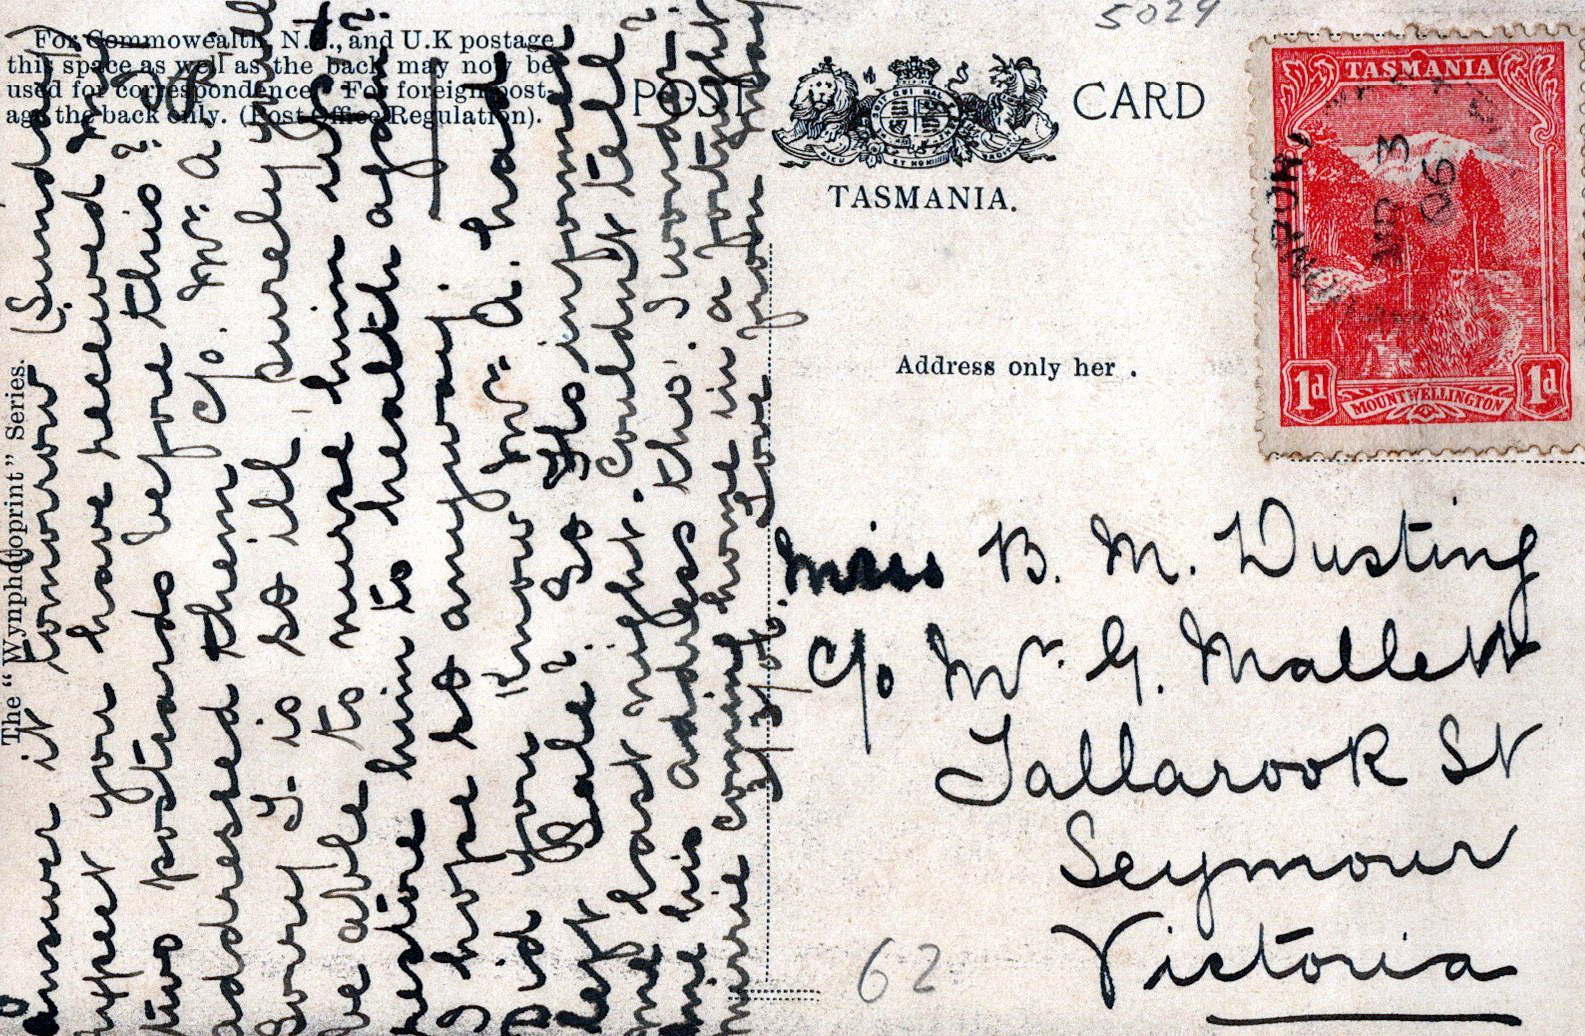 5029
For Commonwealth, N.Z., and U.K postage
this space as well as the back may now be
used for correspondence. For foreign post-
age the back only. (Post Office Regulation).
POST CARD
TASMANIA.
Address only her .
The "Wynphotoprint" Series.
TASMANIA
1d
MOUNT WELLINGTON
1d
answer it tomorrow (Sunday)
expect you have received my
two postcards before this?
addressed them c/o. Mr. a,
Sorry J. is so ill, surely
be able to nurse him
restore him to health again?
I hope so anyway.
Did you know Mr. A. had
left Beale? So He informed
me last night. Couldn't tell
me his address tho'. I wonder
coming home in a fortnight
3/3/06. Love from
Miss B. M. Dusting
C/o Mr. G. Mallett
Tallarook St
Seymour
Victoria
62